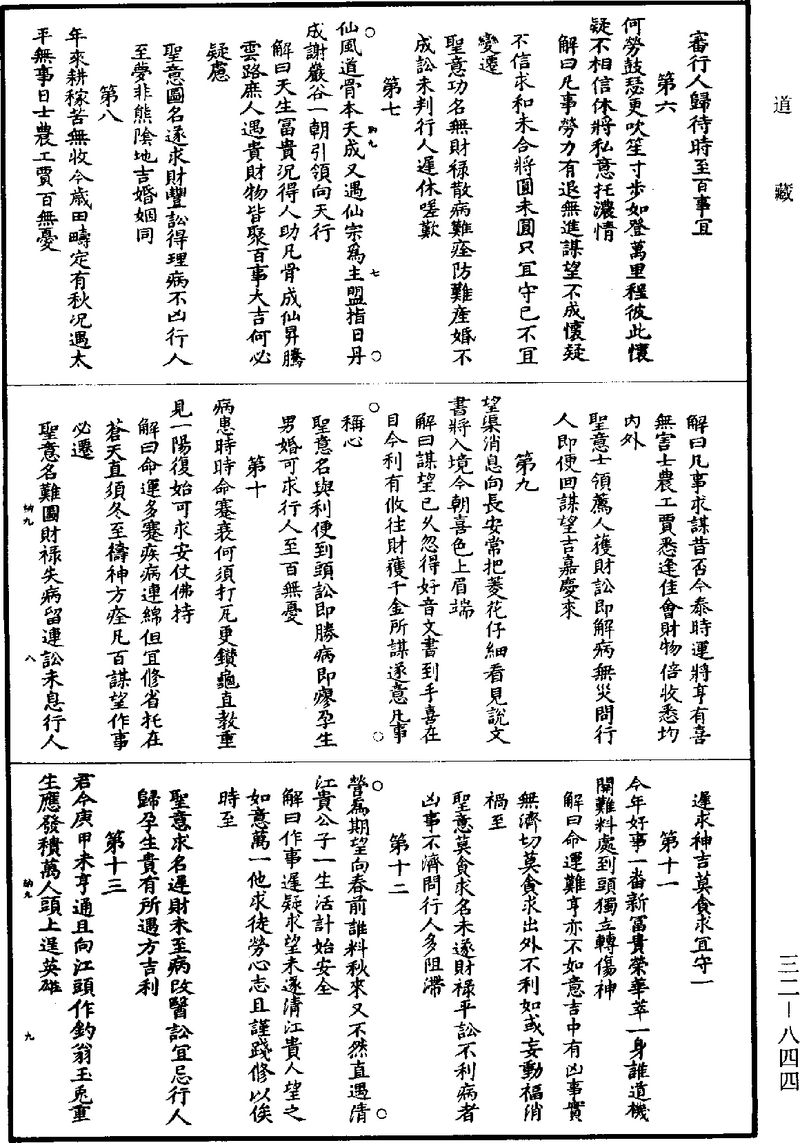 道藏
審行人歸待時至百事宜
第六
何勞鼓瑟更吹笙寸步如登萬里程彼此懷
疑不相信休將私意托濃情
解曰凡事勞力有退無進謀望不成懷疑
不信求和未合將圓未圓只宜守己不宜
變遷
聖意功名無財祿散病難痊防難產婚不
成訟未判行人遲休嗟歎
第七
仙風道骨本天成又遇仙宗為主盟指日丹
成謝巖谷一朝引領向天行
解曰天生富貴況得人助凡骨成仙昇騰
雲路庶人遇貴財物皆聚百事大吉何必
疑慮
聖意圖名遂求財豐訟得理病不凶行人
至夢非熊陰地吉婚姻同
第八
年來耕稼苦無收今歲田疇定有秋況遇太
平無事日士農工賈百無憂
納九 七
解曰凡事求謀昔否今泰時運將亨有喜
無害士農工賈悉逢佳會財物倍收悉均
內外
聖意士領薦人獲財訟即解病無災問行
人即便回謀望吉嘉慶來
第九
望渠消息向長安常把菱花仔細看見說文
書將入境今朝喜色上眉端
解曰謀望已久忽得好音文書到手喜在
目今利有攸往財獲千金所謀遂意凡事
稱心
聖意名與利便到頭訟即勝病即瘳孕生
男婚可求行人至百無憂
第十
病患時時命蹇衰何須打瓦更鑽龜直教重
見一陽復始可求安仗佛持
解曰命運多蹇疾病連綿但宜修省托在
蒼天直須冬至禱神方痊凡百謀望作事
必遷
聖意名難圖財祿失病留連訟未息行人
納九 八
遲求神吉莫貪求宜守一
第十一
今年好事一番新富貴榮華萃一身誰道機
關難料處到頭獨立轉傷神
解曰命運難亨亦不如意吉中有凶事實
無濟切莫貪求出外不利如或妄動福消
禍至
聖意莫貪求名未遂財祿平訟不利病者
凶事不濟問行人多阻滯
第十二
營為期望向春前誰料秋來又不然直遇清
江貴公子一生活計始安全
解曰作事遲疑求望未遂清江貴人望之
如意萬一他求徒勞心志且謹踐修以俟
時至
聖意求名遲財未至病改醫訟宜忌行人
歸孕生貴有所遇方吉利
第十三
君今庚甲未亨通且向江頭作釣翁玉兔重
生應發積萬人頭上逞英雄
納九 九
三二—八四四